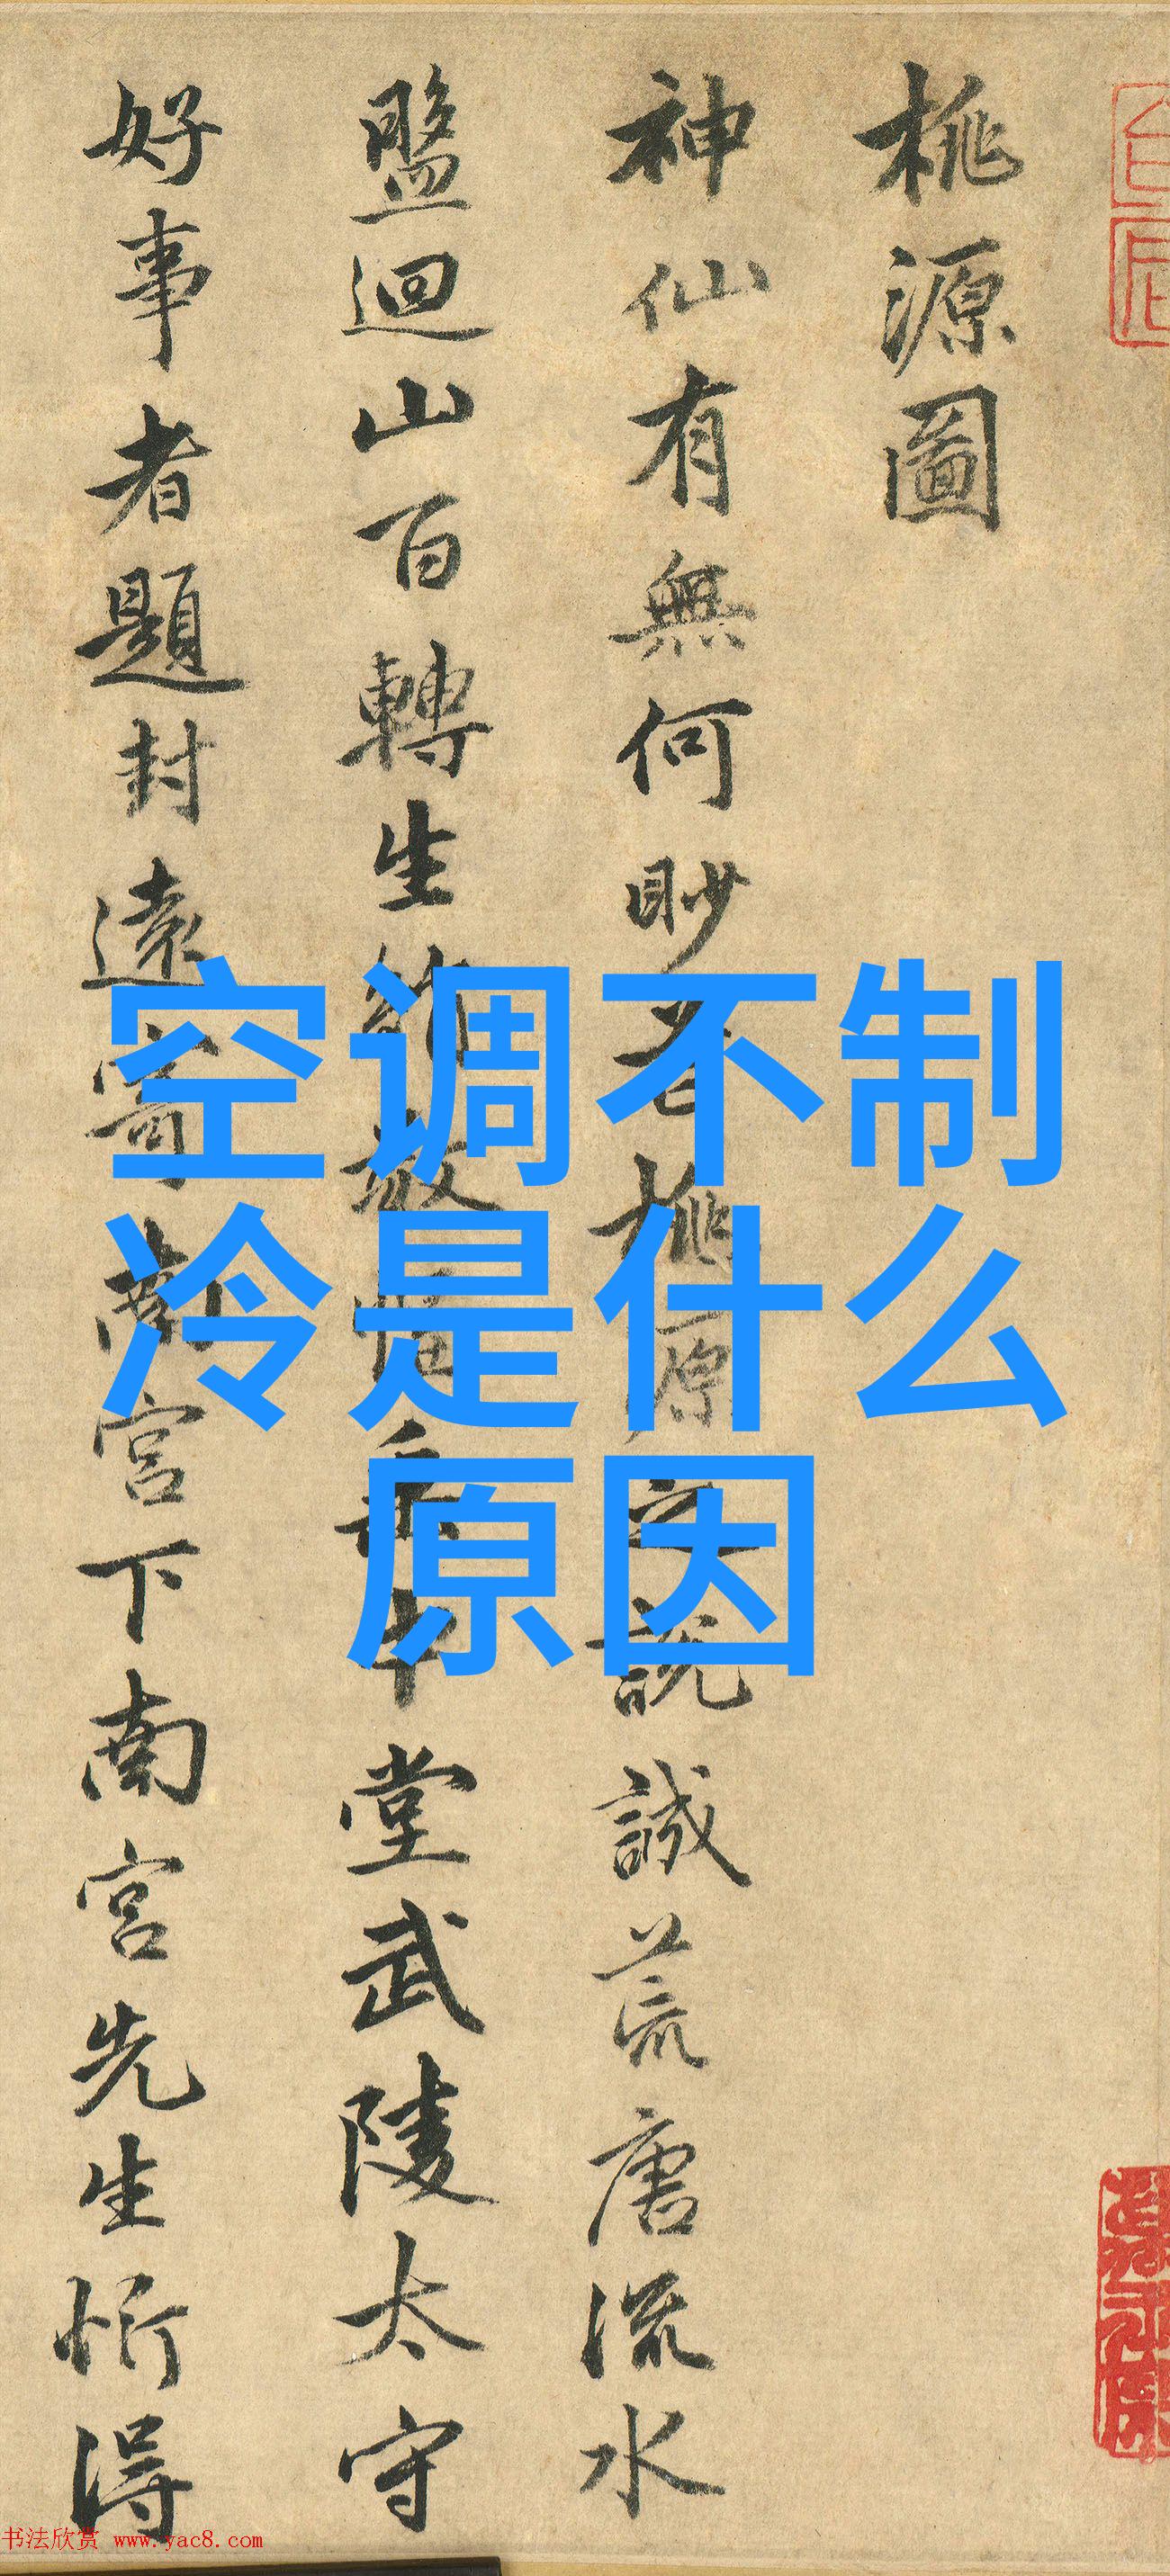 桃源圖
神仙有無何眇芒桃源之說誠荒唐流水
盤迴山百轉生綃數幅垂中堂武陵太守
好事者題封遠寄南宮下南宮先生忻得
空调不制
冷是什么
原因
书法欣赏 www.yac8.com